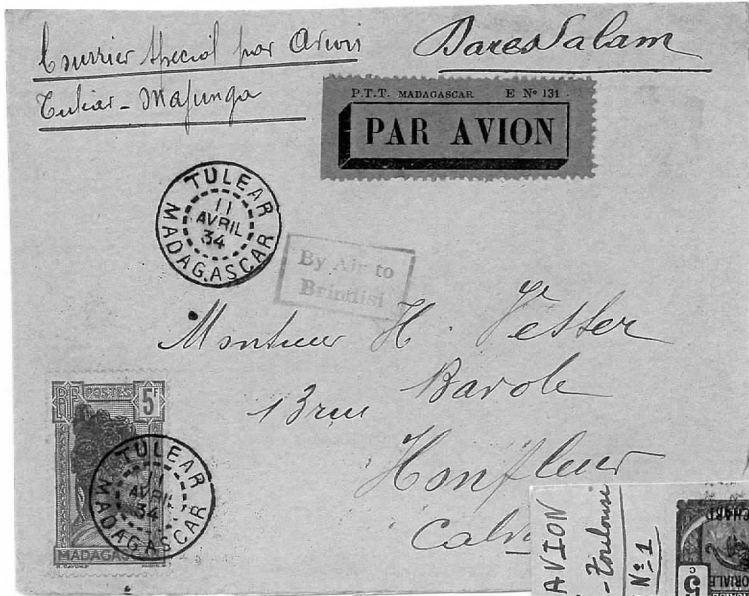 Courrier Special par Avion
Tulear - Majunga
Dares Salam
P.T.T. MADAGASCAR E Nº 131
PAR AVION
TULEAR
11
AVRIL
34
MADAGASCAR
By Air to
Brindisi
Monsieur H.
13 rue
Honfleur
RF POSTES 5F
TULEAR
11
AVRIL
34
MADAGASCAR
MADAGAS
AVION
- Toulouse
Nº 1
5
c